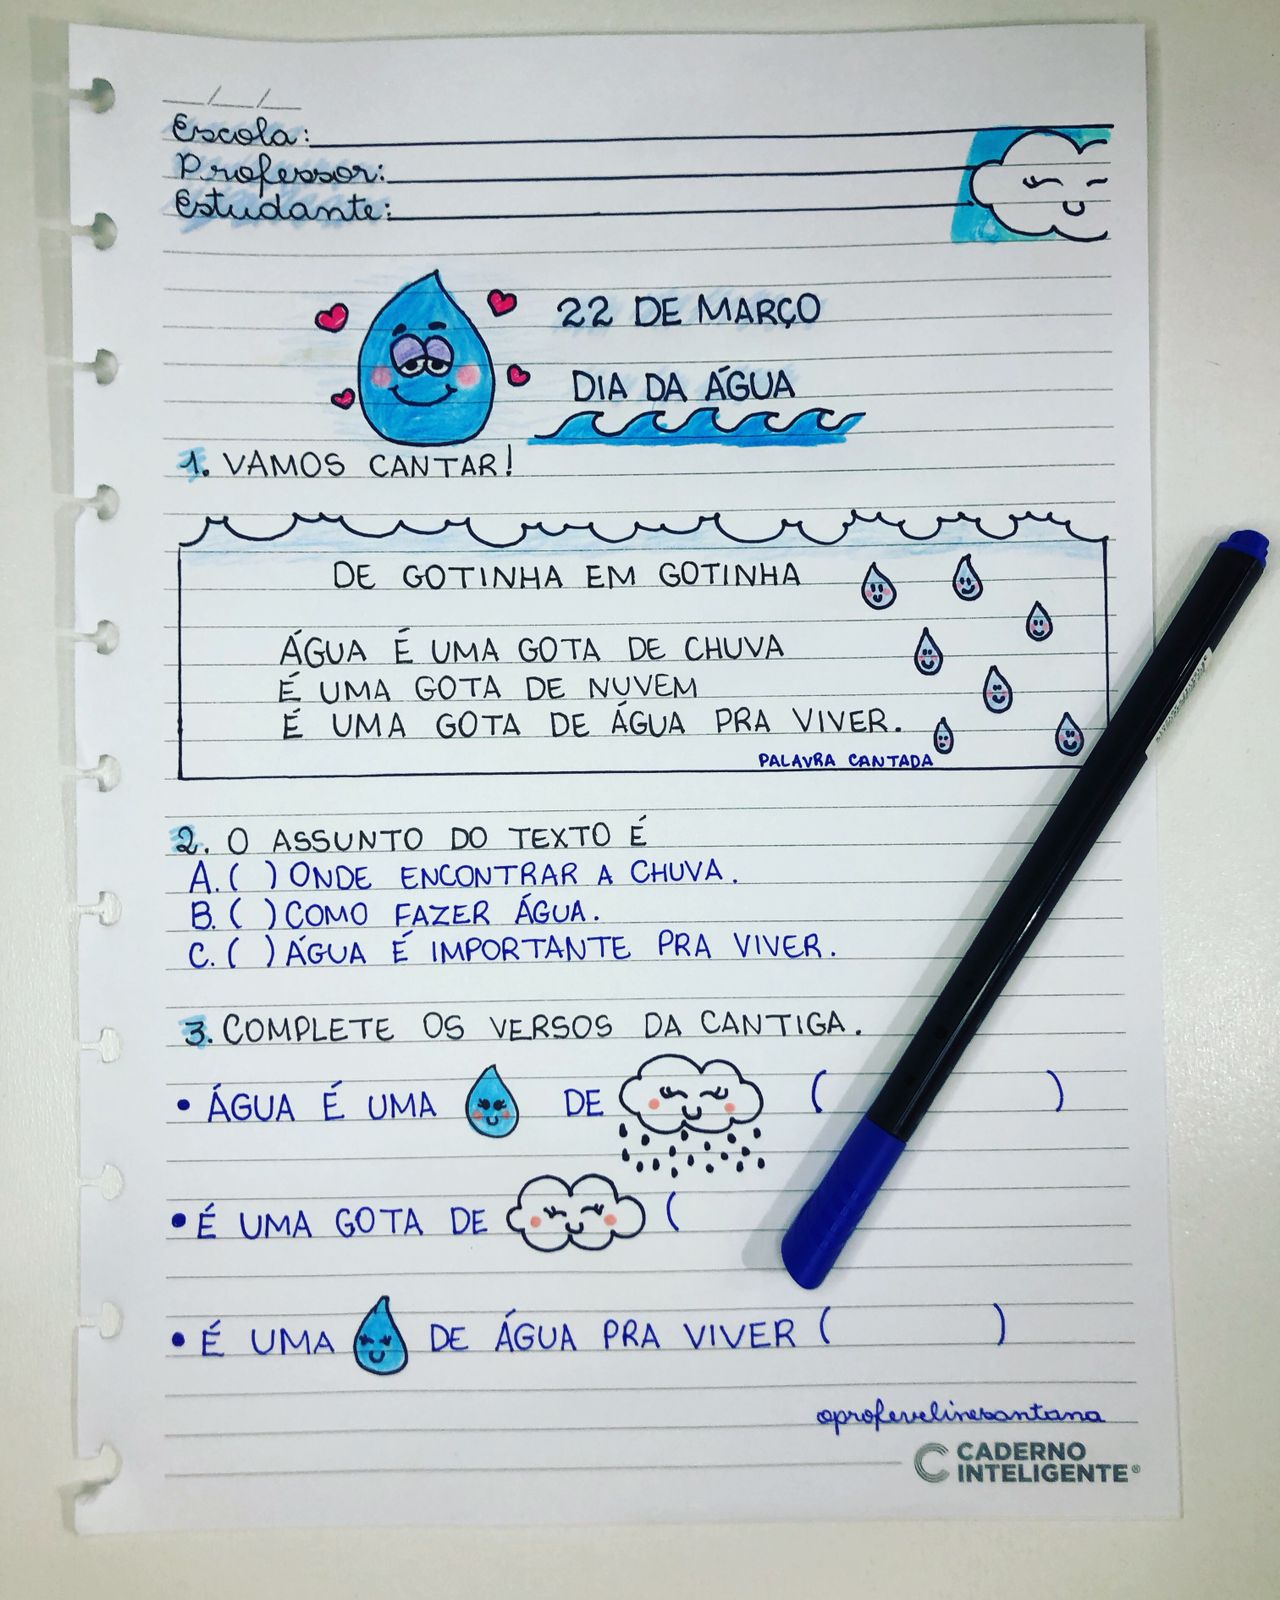 __/__/__
Escola:
Professor:
Estudante:
22 DE MARÇO
DIA DA ÁGUA
1. VAMOS CANTAR!
DE GOTINHA EM GOTINHA
ÁGUA É UMA GOTA DE CHUVA
É UMA GOTA DE NUVEM
É UMA GOTA DE ÁGUA PRA VIVER.
PALAVRA CANTADA
2. O ASSUNTO DO TEXTO É
A. ( ) ONDE ENCONTRAR A CHUVA.
B. ( ) COMO FAZER ÁGUA.
C. ( ) ÁGUA É IMPORTANTE PRA VIVER.
3. COMPLETE OS VERSOS DA CANTIGA.
• ÁGUA É UMA DE ( )
• É UMA GOTA DE (
• É UMA DE ÁGUA PRA VIVER ( )
@profevelinesantana
CADERNO
INTELIGENTE®